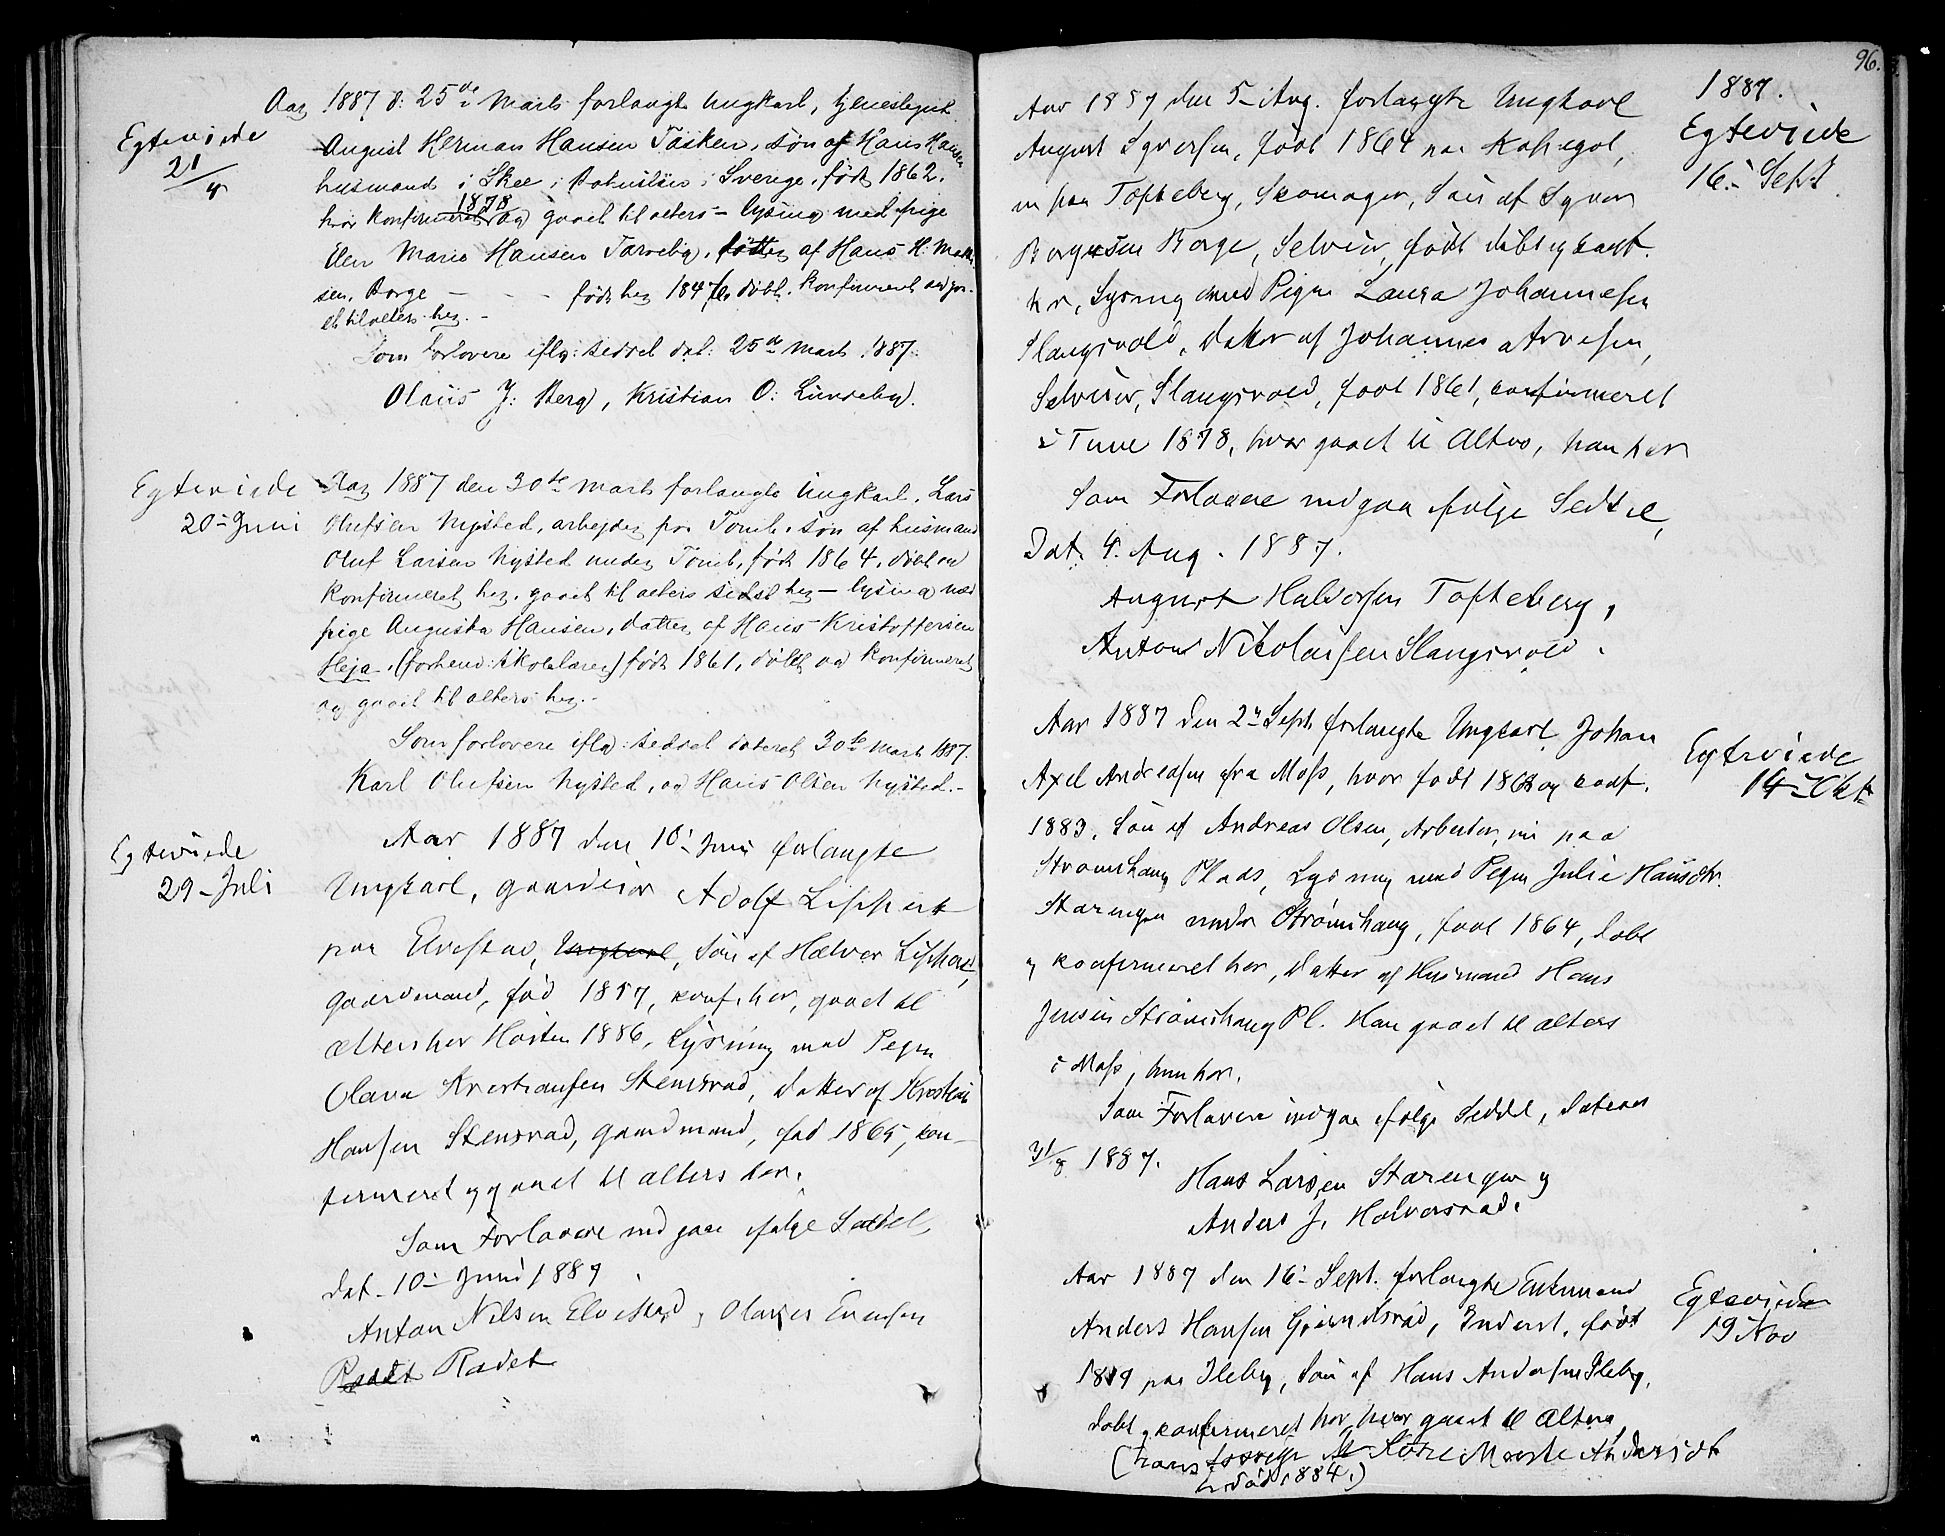 Aar 1887 d: 25de Marts forlangte Ungkarl, tjenestegut
Egteviede
21/4
August Herman Hansen Tasken, søn af Hans Hansen
husmand i Skee i Bohuslen i Sverige, født 1862.
hvor konfirmeret 1878 og gaaet til alters – lysing med pige
Elen Marie Hansen Tarveby, datter af Hans H. Math-
sen, Borge – - - født her 1847 døbt, konfirmeret og gaa-
et til alters her. -
Som forlovere iflg: seddel dat: 25de Marts 1887:
Olaus J: Berg, Kristian O: Lundeby.
Egteviede
20– Juni
Aar 1887 den 30te Marts forlangte Ungkarl, Lars
Olufsen Nysted, arbejder paa Tomb, søn af husmand
Oluf Larsen Nysted under Tomb, født 1864, døbt og
konfirmeret her, gaaet til alters sidst her – lysing med
pige Augusta Hansen, datter af Hans Kristoffersen
Heja, (forhenv: skolelærer) født 1861, døbt og konfirmeret
og gaaet til alters her. -
Som forlovere iflg: seddel dateret 30te Marts 1887.
Karl Olufsen Nysted, og Hans Olsen Nysted. -
Egteviede
29– Juli
Aar 1887 den 10– Juni forlangte
Ungkarl, Gaardeier Adolf Lippert
paa Elvestad, Ungkarl, Søn af Halvor Lippert,
Gaardmand, fød 1857, konf. her, gaaet til
Alters her Høsten 1886, Lysning med Pigen
Olava Kristiansen Stensrød, Datter af Kristian
Hansen Stensrød, Gaardmand, fød 1865, kon-
firmeret og gaaet til alters her.
Som Forlovere indgaa ifølge Seddel,
dat. 10– Juni 1887
Anton Nilsen Elvestad, Olaves Evensen
Rødet Rødet
96.
1887.
Aar 1887 den 5– Aug. forlangte Ungkarl
Egteviede
16– Sept
August Syversen, født 1864 paa
nu paa Tofteberg, Skomager, Søn af Syver
Borge, Selveier, født døbt og konf.
her, Lysning med Pigen Laura Johannesen
Slangsvold, Datter af Johannes Arvesen,
Selveier, Slangsvold, født 1861, confirmeret
i Tune 1878, hvor gaaet til Alters, han her
Som Forlovere indgaa ifølge Seddel,
Dat. 4. Aug. 1887.
August Halvorsen Tofteberg,
Anton Nikolaisen Slangsvold.
Aar 1887 den 2– Sept. forlangte Ungkarl Johan
Egteviede
14– Okt
Axel Andreasen fra Moss, hvor født og conf.
1883, Søn af Andreas Olsen, Arbeider, nu paa
Strømshaug Plads, Lysning med Pigen Julie Hansdtr.
Starengen under Strømshaug, født 1864, døbt
og konfirmeret her, Datter af Husmand Hans
Jensen Strømshaug Pl. Han gaaet til alters
i Moss, hun her.
Som Forlovere indgaa ifølge Seddel, dateret
31/8 1887.
Hans Larsen Starengen og
Anders J. Halvorsrød.
Aar 1887 den 16– Sept. forlangte Enkemand
Egteviede
19 Nov
Anders Hansen Grimdsrød, Inderst, født
1819 paa Ileby, Søn af Hans Andersen Ileby,
døbt og konfirmeret her, hvor gaaet til Alters,
(hans forrige Kone Marte Andersdt
er død 1884.)